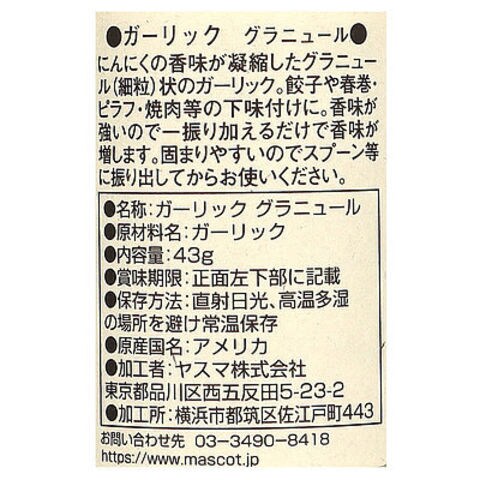 ●ガーリック グラニュール●
にんにくの香味が凝縮したグラニュー
ル(細粒)状のガーリック。餃子や春巻・
ピラフ・焼肉等の下味付けに。香味が
強いので一振り加えるだけで香味が
増します。固まりやすいのでスプーン等
に振り出してからお使いください。
●名称:ガーリック グラニュール
●原材料名:ガーリック
●内容量:43g
●賞味期限:正面左下部に記載
●保存方法:直射日光、高温多湿
の場所を避け常温保存
●原産国名:アメリカ
●加工者:ヤスマ株式会社
東京都品川区西五反田5-23-2
●加工所:横浜市都筑区佐江戸町443
お問い合わせ先 03-3490-8418
https://www.mascot.jp/